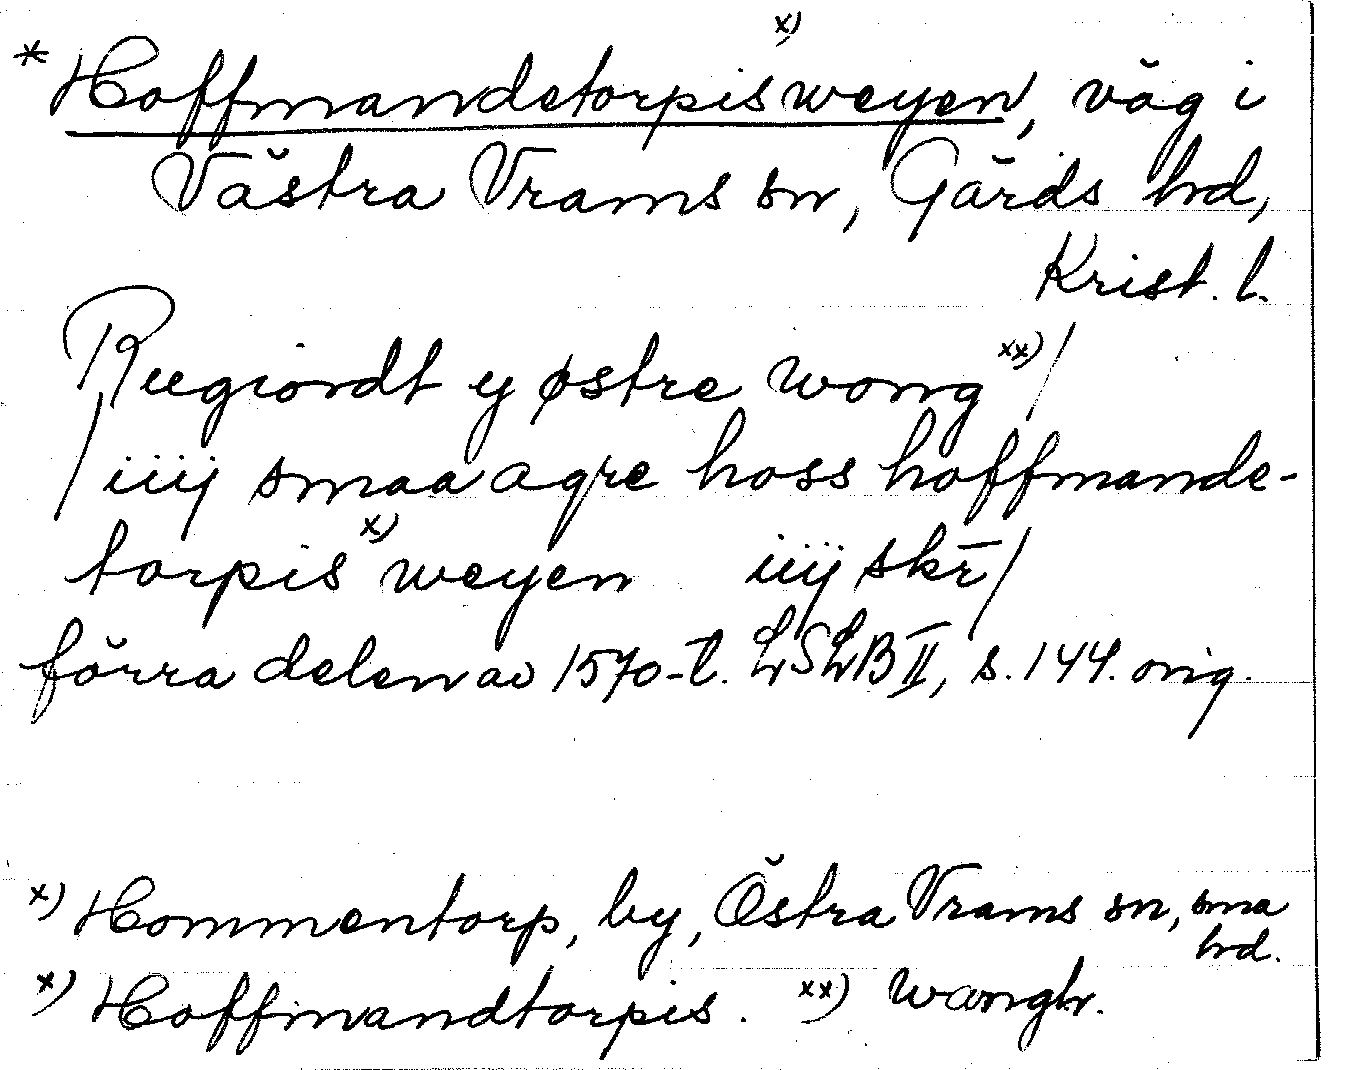 * Hoffmandetorpis x) weyen, väg i
Västra Vrams sn, Gärds hrd,
Krist. l.
Reegiordt y østre wong xx) /
/ iiij smaa agre hoss hoffmande-
torpis x) weyen iiij skr̄ /
förra delen av 1570-t. LSLB II, s. 144. orig.
x) Hommentorp, by, Östra Vrams sn, sma
hrd.
x) Hoffmandtorpis. xx) wangh.